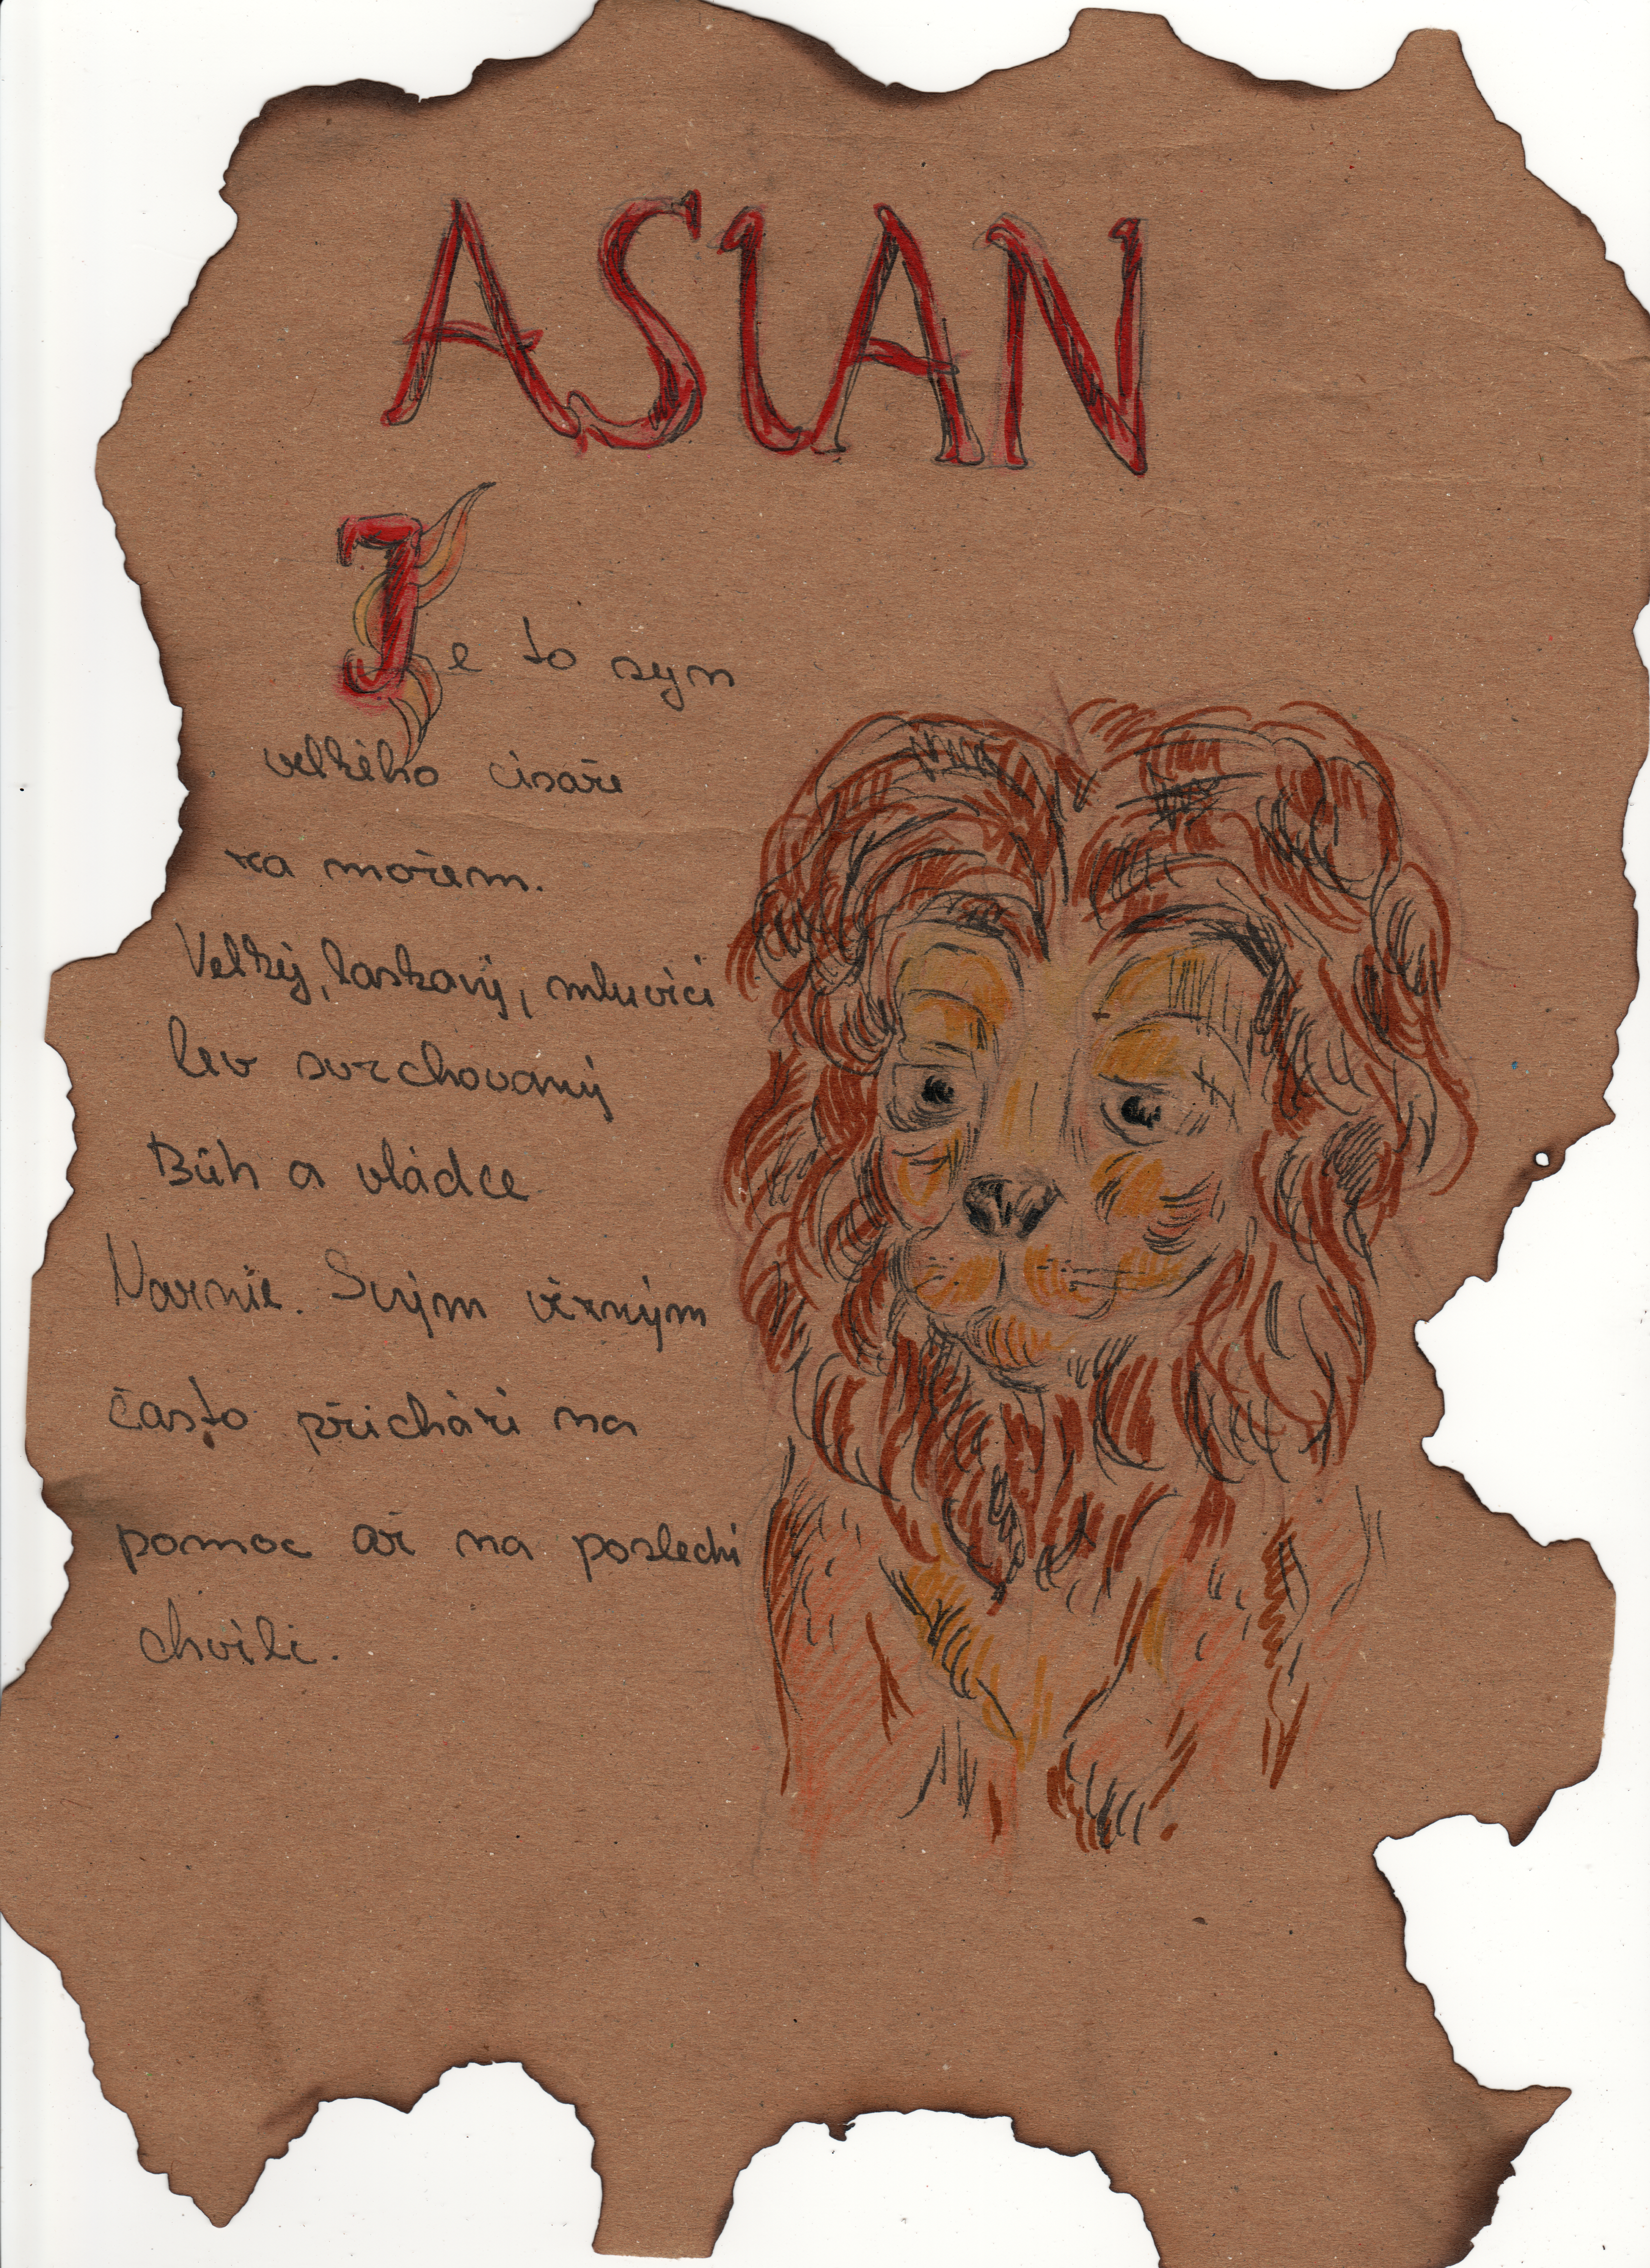 ASLAN
Je to syn
velkého císaře
za mořem.
Velký, laskavý, mluvící
lev svrchovaný
Bůh a vládce
Narnie. Svým věrným
často přichází na
pomoc až na poslední
chvíli.